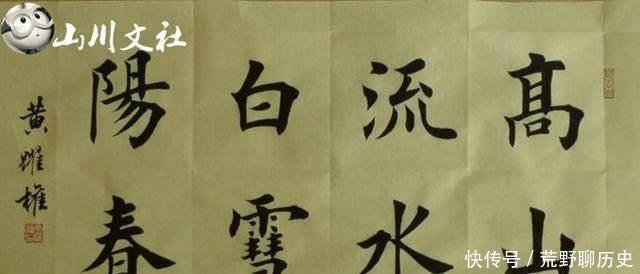 山川文社
髙山
流水
白䨮
陽春
黄
快传号 / 荒野聊历史